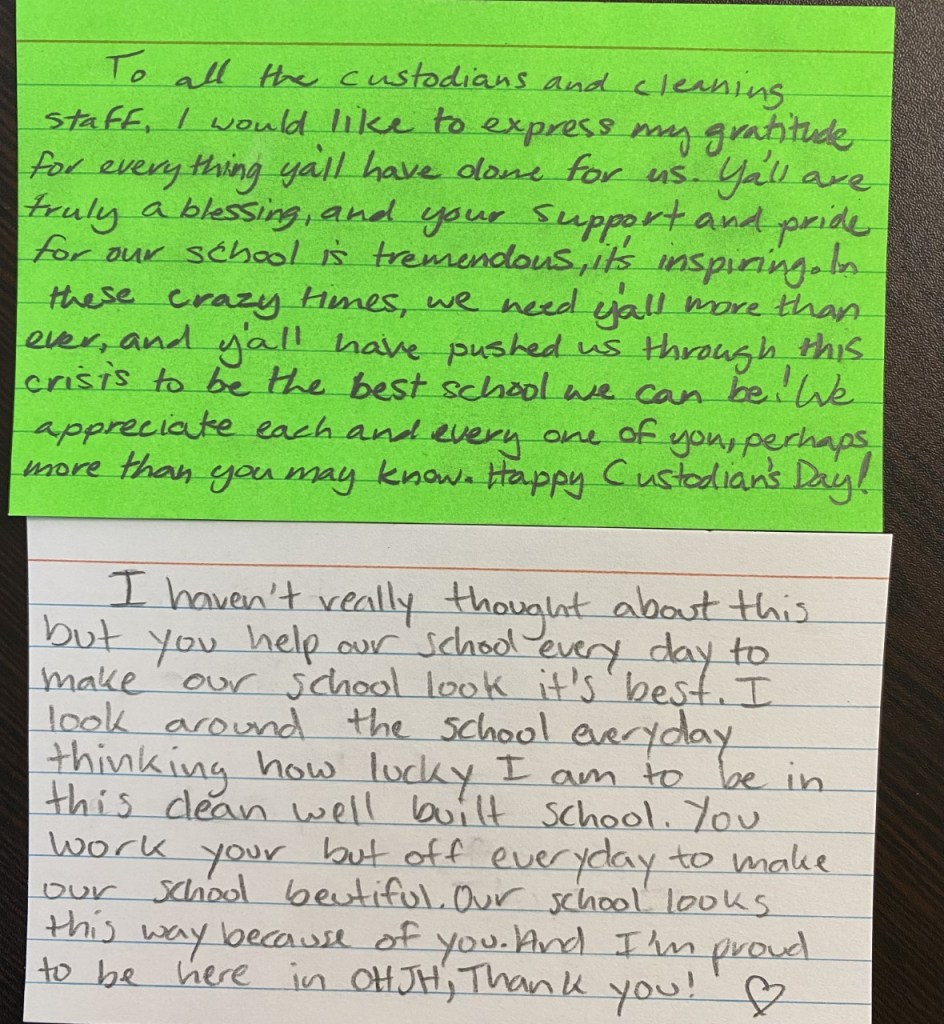 To all the custodians and cleaning
staff, I would like to express my gratitude
for everything ya'll have done for us. Ya'll are
truly a blessing, and your support and pride
for our school is tremendous, it's inspiring. In
these crazy times, we need y'all more than
ever, and y'all have pushed us through this
crisis to be the best school we can be! We
appreciate each and every one of you, perhaps
more than you may know. Happy Custodian's Day!
I haven't really thought about this
but you help our school every day to
make our school look it's best. I
look around the school everyday
thinking how lucky I am to be in
this clean well built school. You
work your but off everyday to make
our school beutiful. Our school looks
this way because of you. And I'm proud
to be here in OHJH, Thank you! ♡